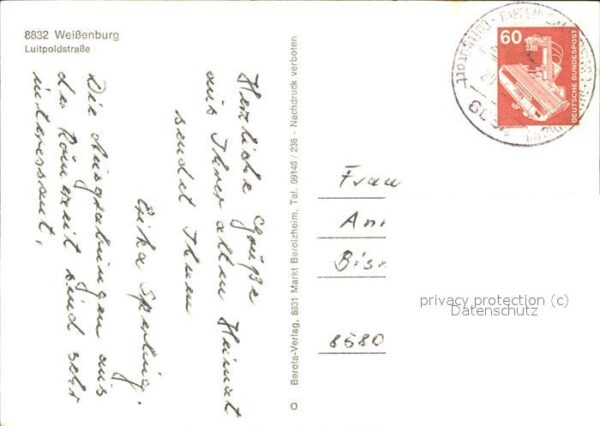 8832 Weißenburg
Luitpoldstraße
Herzliche Grüße
aus Ihrer alten Heimat
sendet Ihnen
Erika Sperling.
Die Ausgrabungen aus
der Römerzeit sind sehr
interessant.
Berota-Verlag, 8831 Markt Berolzheim, Tel. 09146 / 236 - Nachdruck verboten
60
DEUTSCHE BUNDESPOST
Frau
8580
privacy protection (c)
Datenschutz